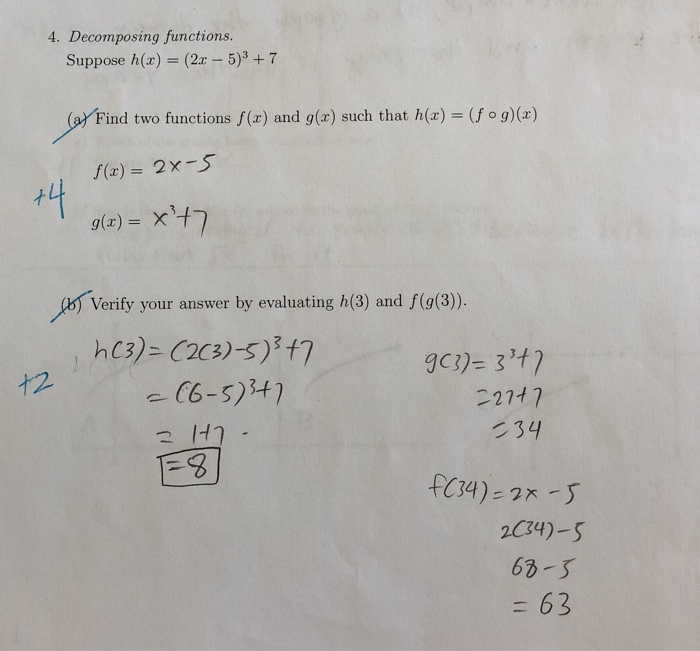 4. Decomposing functions.
Suppose h(x) = (2x − 5)³ + 7
(a) Find two functions f(x) and g(x) such that h(x) = (f ∘ g)(x)
f(x) = 2x-5
+4
g(x) = x³+7
(b) Verify your answer by evaluating h(3) and f(g(3)).
h(3) = (2(3)-5)³+7
+2
= (6-5)³+7
= 1+7
= 8
g(3) = 3³+7
= 27+7
= 34
f(34) = 2x - 5
2(34)-5
68-5
= 63